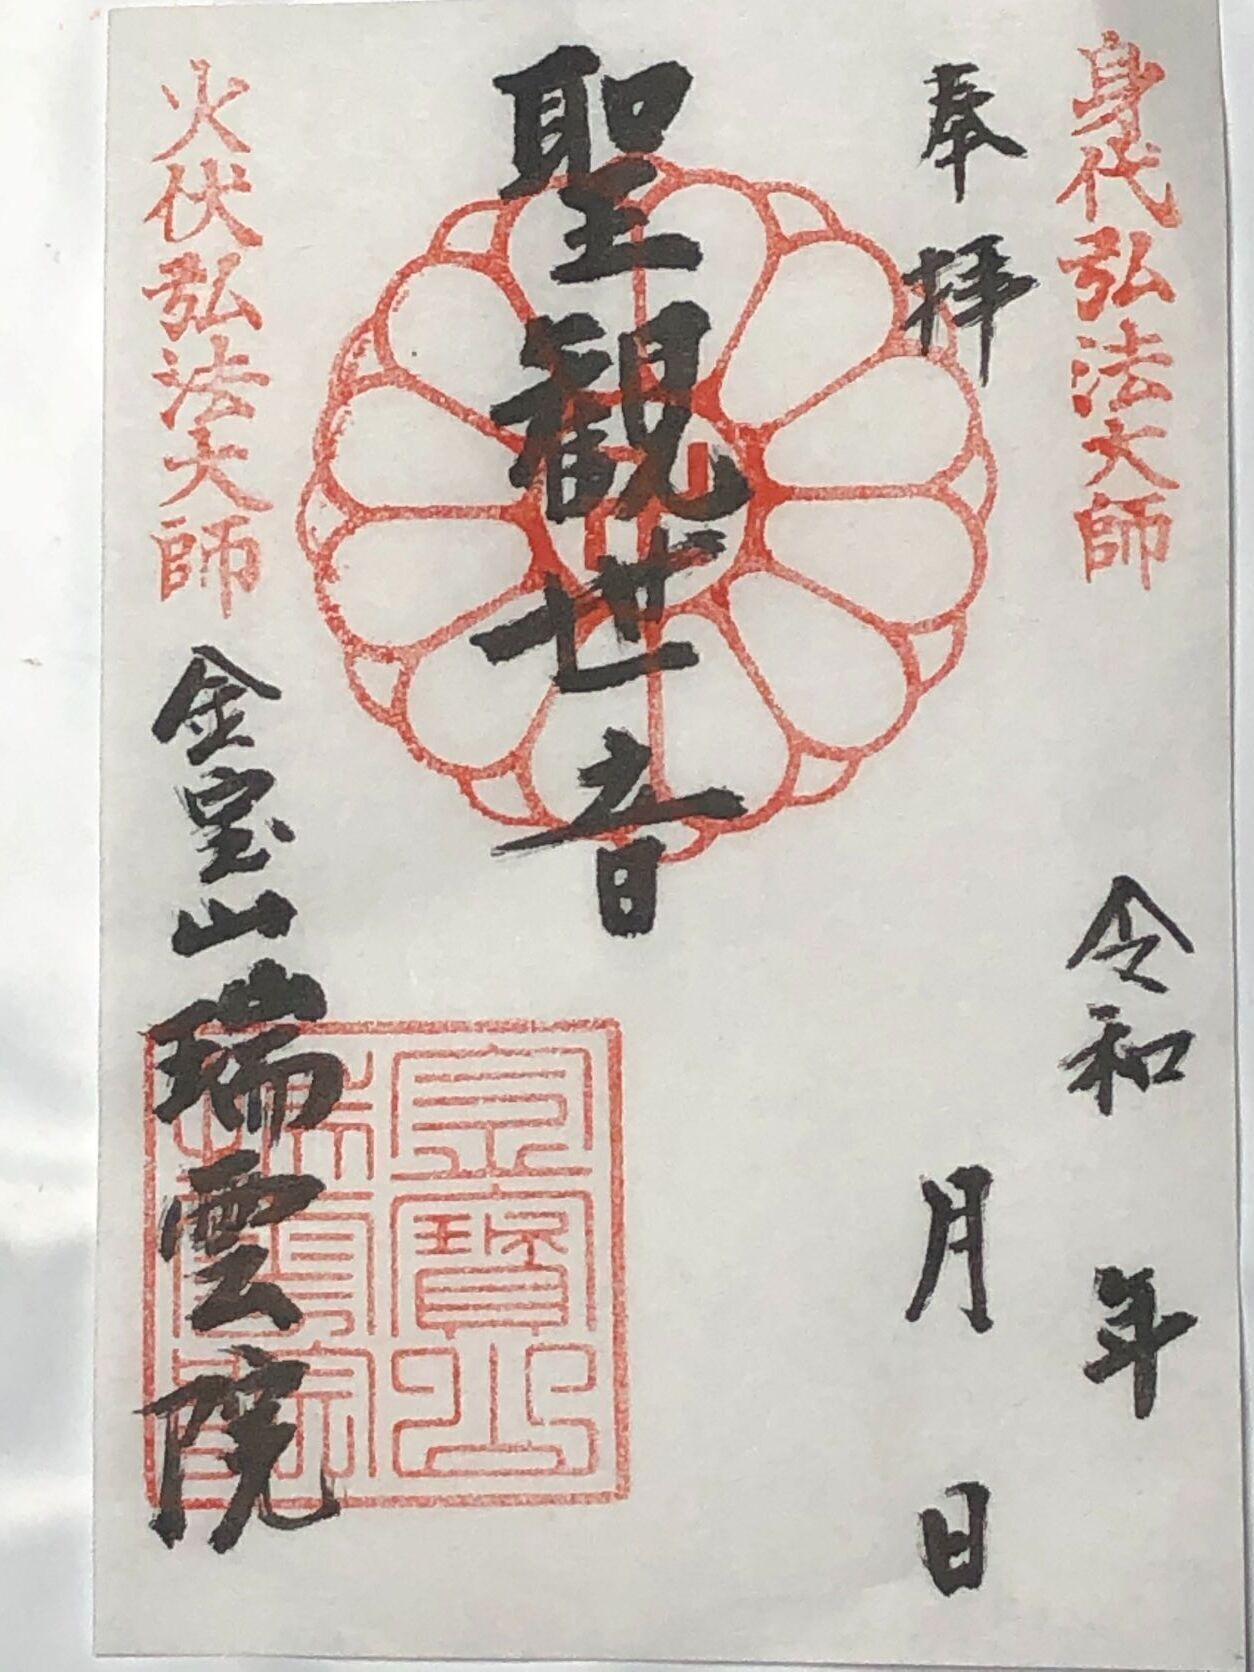 身代弘法大師
令和 年
奉拝
月 日
聖観世音
火伏弘法大師
金宝山瑞雲院
金寶山
瑞雲院